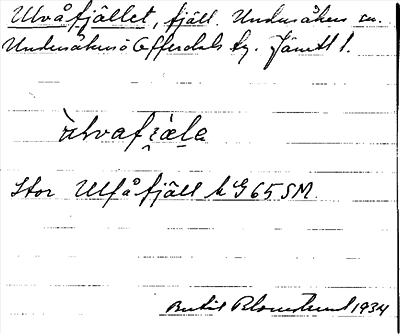 Ulvåfjället, fjäll. Undersåkers sn.
Undersåkers o Offerdals tg. Jämtl.
ùlvafi̯æla
Stor Ulfåfjäll k G65SM.
Bertil Blomlund 1934